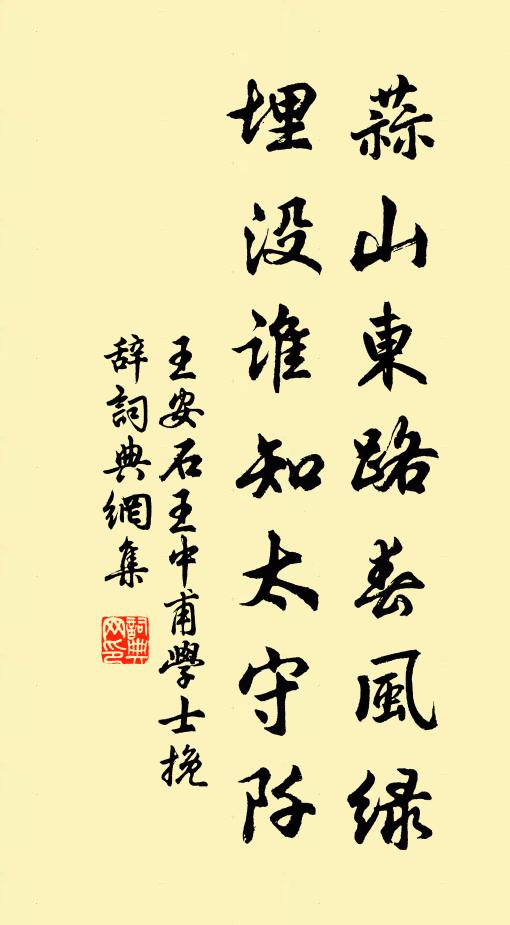 蒜山東路春風緑
埋没誰知太守阡
王安石王中甫學士挽
辭詞典網集
詞典网印